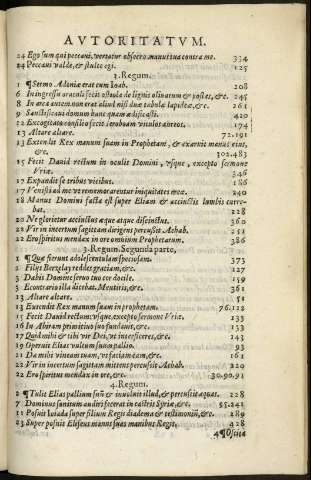 AVTORITATVM.
24 Ego sum qui peccavi, vertatur obsecro manus tua contra me. 334
24 Peccavi valde, & stulte egi. 125
3. Regum.
1 ¶ Sermo Adoniæ erat cum Ioab. 208
6 In ingressu oraculi fecit ostiola de lignis olivarum & postes, &c. 245
8 In arca autem non erat aliud nisi duæ tabulæ lapideæ, &c. 261
9 Sanctificavi domum hanc quam ædificasti. 420
12 Excogitato consilio fecit Ieroboam vitulos aureos. 174
13 Altare altare. 72.191
13 Extendit Rex manum suam in Prophetam, & exaruit manus eius,
&c. 302.483
15 Fecit David rectum in oculis Domini, usque, excepto sermone
Vriæ. 346
17 Expandit se tribus vicibus. 186
17 Venisti ad me ut rememorarentur iniquitates meæ. 240
18 Manus Domini facta est super Eliam & accinctis lumbis curre-
bat. 228
20 Ne glorietur accinctus æque atque discinctus. 360
22 Vir in incertum sagittam dirigens percussit Achab. 251
22 Ero spiritus mendax in ore omnium Prophetarum. 386
3. Regum. Segunda parte.
1 ¶ Quæsierunt adolescentulam speciosam. 373
2 Filijs Berzelay reddes gratiam, &c. 127
3 Dabis Domine servo tuo cor docile. 159
3 Econtrario illa dicebat. Mentiris, &c. 361
13 Altare altare. 51
13 Extendit Rex manum suam in prophetam. 76.123
15 Fecit David rectum: usque. excepto sermone Vriæ. 133
16 In Abiram primitivo suo fundavit, &c. 133
17 Quid mihi & tibi vir Dei, ut interficeres, &c. 143
19 Operuit Elias vultum suum pallio. 93
21 Da mihi vineam tuam, ut faciam eam, &c. 161
22 Vir in incertum sagittam mittens percussit Achab. 220
22 Ero spiritus mendax in ore, &c. 30.90.91
4. Regum.
2 ¶ Tulit Elias pallium suũ & involvit illud, & percussit aquas. 228
7 Dominus sonitum audiri fecerat in castris Syriæ, &c. 55.241
11 Posuit Ioiada super filium Regis diadema & testimoniũ, &c. 189
13 Superposuit Eliseus manus suas manibus Regis. 428